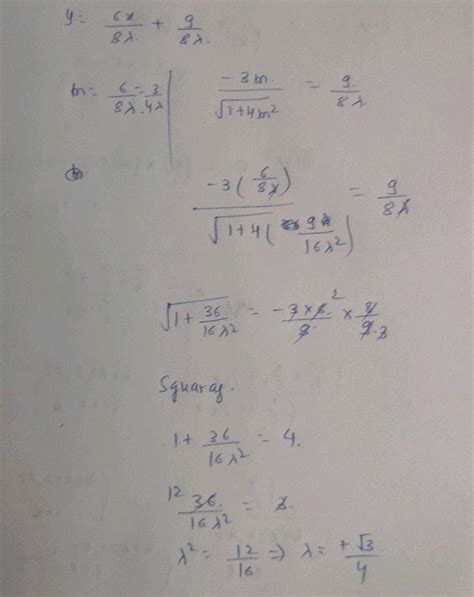 y = 6x/8λ + 9/8λ.
m = 6/8λ = 3/4λ | -3m/√(1+4m²) = 9/8λ
-3(6/8λ)/√(1+4(9/16λ²)) = 9/8λ
√(1 + 36/16λ²) = -3×6/8 2 × 8/9 3
Squaring.
1 + 36/16λ² = 4.
12 36/16λ² = 3.
λ² = 12/16 ⇒ λ = +√3/4